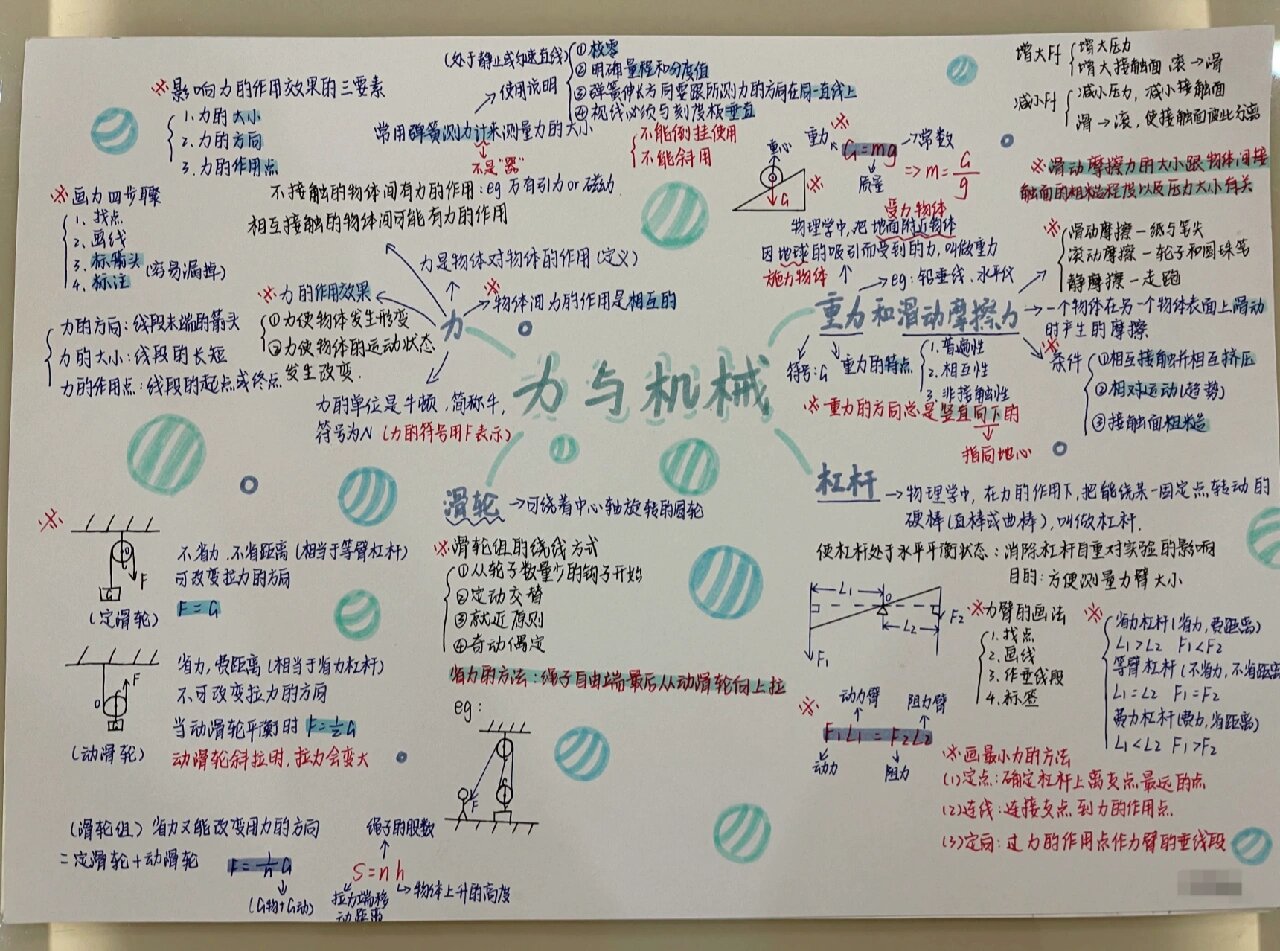 力与机械
力
※影响力的作用效果的三要素
1.力的大小
2.力的方向
3.力的作用点
※画力四步骤
1.找点
2.画线
3.标箭头(容易漏掉)
4.标注
力的方向:线段末端的箭头
力的大小:线段的长短
力的作用点:线段的起点或终点
(处于静止或匀速直线)
使用说明
①校零
②明确量程和分度值
③弹簧伸长方向要跟所测力的方向在同一直线上
④视线必须与刻度板垂直
常用弹簧测力计来测量力的大小
不是"器"
不能倒挂使用
不能斜用
不接触的物体间有力的作用:eg 万有引力or磁力
相互接触的物体间可能有力的作用
力是物体对物体的作用(定义)
※物体间力的作用是相互的
※力的作用效果
①力使物体发生形变
②力使物体的运动状态
发生改变.
力的单位是牛顿,简称牛,
符号为N (力的符号用F表示)
重力和滑动摩擦力
增大Ff
增大压力
增大接触面 滚→滑
减小Ff
减小压力,减小接触面
滑→滚,使接触面彼此分离
※滑动摩擦力的大小跟物体间接
触面的粗糙程度以及压力大小有关
重心
G
※
重力 G=mg →常数
质量
=> m=G/g
受力物体
物理学中,把地面附近物体
因地球的吸引而受到的力,叫做重力
施力物体
eg:铅垂线、水平仪
※
滑动摩擦—纸与笔尖
滚动摩擦—轮子和圆珠笔
静摩擦—走路
一个物体在另一个物体表面上滑动
时产生的摩擦
※条件
①相互接触并相互挤压
②相对运动(趋势)
③接触面粗糙
符号:G
重力的特点
1.普遍性
2.相互性
3.非接触性
※重力的方向总是竖直向下的
指向地心
滑轮→可绕着中心轴旋转的圆轮
※
F
G
(定滑轮)
不省力,不省距离(相当于等臂杠杆)
可改变拉力的方向
F=G
F
O
G
(动滑轮)
省力,费距离(相当于省力杠杆)
不可改变拉力的方向
当动滑轮平衡时 F=½G
动滑轮斜拉时,拉力会变大
(滑轮组) 省力又能改变用力的方向
=定滑轮+动滑轮
F=1/n G
(G物+G动)
绳子的股数
S=nh
物体上升的高度
拉力端移
动距离
※滑轮组的绕线方式
①从轮子数量少的钩子开始
②定动交替
③就近原则
④奇动偶定
省力的方法:绳子自由端最后从动滑轮向上拉
eg:
F
杠杆→物理学中,在力的作用下,把能绕某一固定点转动的
硬棒(直棒或曲棒),叫做杠杆.
使杠杆处于水平平衡状态:消除杠杆自重对实验的影响
目的:方便测量力臂大小
L1
O
L2
F1
F2
※力臂的画法
1.找点
2.画线
3.作垂线段
4.标签
※
省力杠杆(省力,费距离)
L1>L2 F1<F2
等臂杠杆(不省力,不省距离
L1=L2 F1=F2
费力杠杆(费力,省距离)
L1<L2 F1>F2
※
动力臂 阻力臂
F1L1=F2L2
动力 阻力
※画最小力的方法
(1)定点:确定杠杆上离支点最远的点
(2)连线:连接支点到力的作用点.
(3)定向:过力的作用点作力臂的垂线段